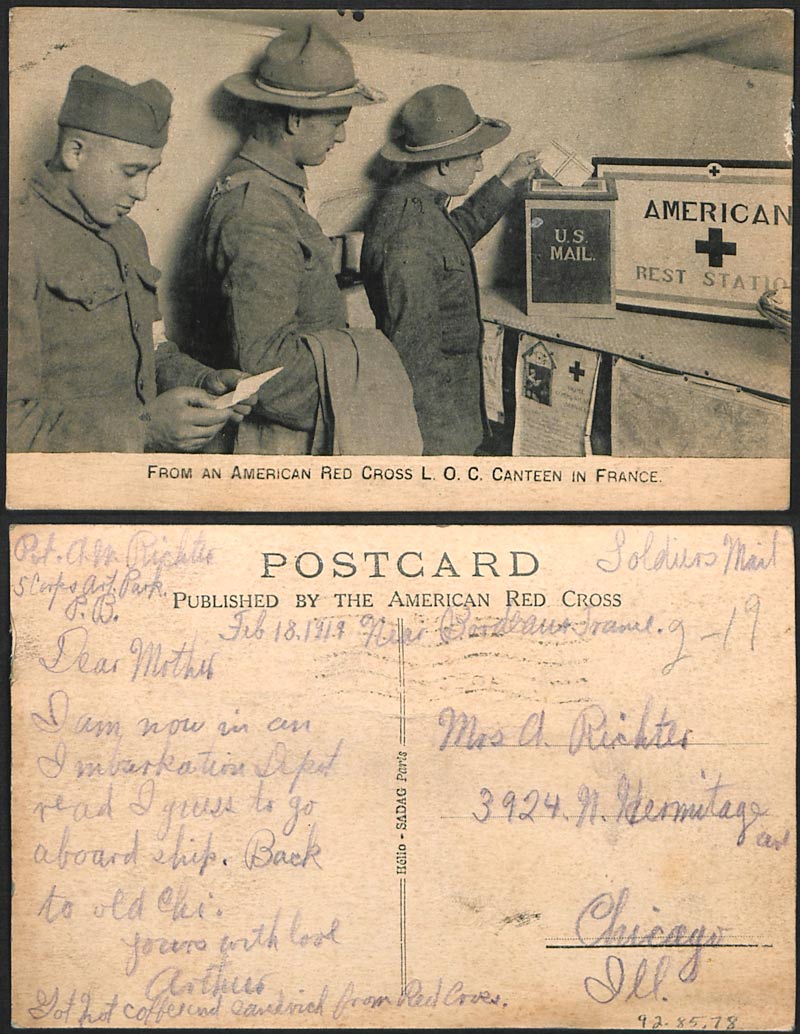 U.S.
MAIL.
AMERICAN
REST STATIO
FROM AN AMERICAN RED CROSS L. O. C. CANTEEN IN FRANCE.
Pvt. A. W. Richter
5 Corps Art. Park.
P. B.
POSTCARD
Soldiers Mail
PUBLISHED BY THE AMERICAN RED CROSS
Feb 18. 1919 Near Bordeaux France.
2-19
Dear Mother
I am now in an
Imbarkation Depot
read I guess to go
aboard ship. Back
to old Chi.
yours with love
Arthur
Got hot coffee and sandwich from Red Cross.
Hélio - SADAG Paris
Mrs A. Richter
3924. N. Hermitage
ave
Chicago
Ill.
92.85.78